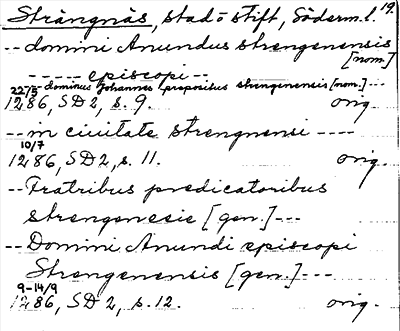 Strängnäs, stad o stift, Söderm. l. 19.
-- domini Anundus strengenensis
[nom.]
----- episcopi --
dominus Johannes prepositus strengenensis [nom.] ---
22/5
1286, SD 2, s. 9. orig.
-- in ciuitate strengnensi ----
10/7
1286, SD 2, s. 11. orig.
-- Fratribus predicatoribus
strengenesie [gen.] ---
-- Domini Anundi episcopi
Strengenensis [gen.] ---
9-14/9
1286, SD 2, s. 12. orig.